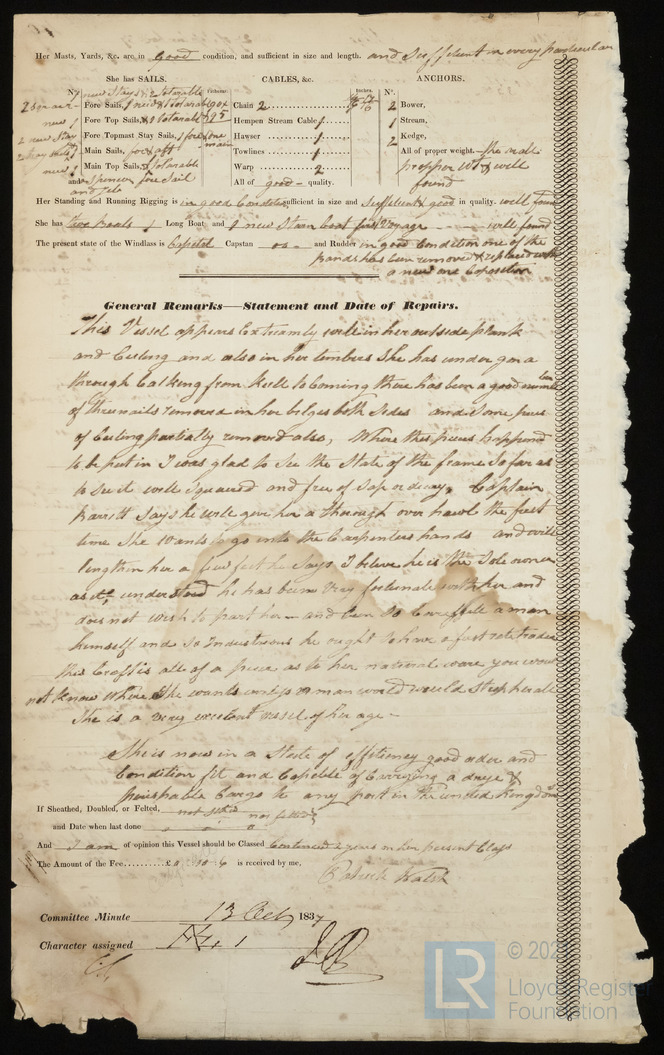 Her Masts, Yards, &c. are in good condition, and sufficient in size and length. and Sufficient in every particular
She has SAILS. CABLES, &c. ANCHORS.
N° Inches. N°.
Fore Sails, Chain 2 2 Bower,
Fore Top Sails, Hempen Stream Cable 1 1 Stream,
Fore Topmast Stay Sails, Hawser 1 2 Kedge,
Main Sails, fore & aft Towlines 1 All of proper weight. the all
Main Top Sails, Warp 2 proper Wt & well
and Spencer fore Sail All of good quality. found
Her Standing and Running Rigging is in good Condition sufficient in size and Sufficient & good in quality. well found
She has two Boats 1 Long Boat and 1 new Stern boat well found
The present state of the Windlass is Capital Capstan do and Rudder in good Condition one of the
bands has been removed & replaced with
a new one Coposition
General Remarks—Statement and Date of Repairs.
This Vessel appears Extreamly well in her outside plank
and Ceeling and also in her timbers She has under gon a
through Calking from Keell to Coming there has been a good
of threunails removed in her belges both Sides and Some pices
of Ceeling partially removed also, Where thes pices happend
to be put in I was glad to See the State of the frame So far as
to See it well Squared and free of Sap or decay, Captain
Barritt Says he will give her a through over hawl the first
time She wants to go into the Carpenters hands and will
lingthin her a few feet he Says I beleve he is the Sole owner
as it understood he has been very fortunate with her and
does not wish to part her and been So Carefull a man
himself and So Industrious he ought to have a first rate trader
this Craft is all of a piece as to her national ware you woud
not know Where She wants
She is a very excelent vessel of her age
She is now in a State of effitioney good order and
Condition fit and Capeble of Carrying a drye &
perishable Cargo to any port in the united Kingdom
If Sheathed, Doubled, or Felted, not Sthd not felted
and Date when last done
And I am of opinion this Vessel should be Classed Continued 2 years in her present Class
The Amount of the Fee £ 10 6 is received by me,
Patrick Walsh
Committee Minute 13 Oct 1837
Character assigned 1
© 202
Lloyds Register
Foundation
LR